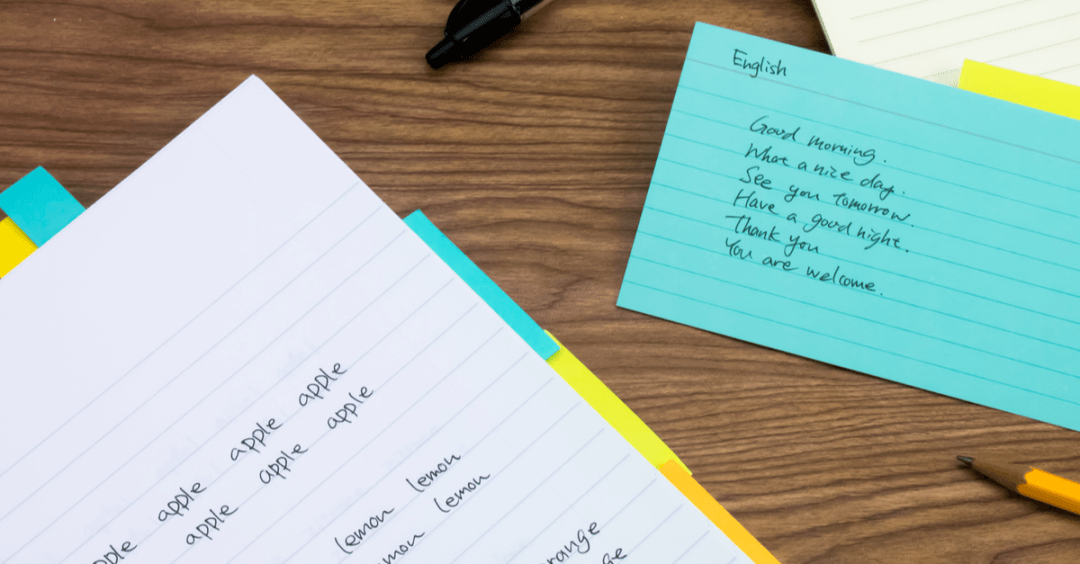 English
Good morning.
What a nice day.
See you tomorrow.
Have a good night.
Thank you
You are welcome.
apple apple apple apple
apple apple apple
lemon lemon
emon lemon
orange
ge